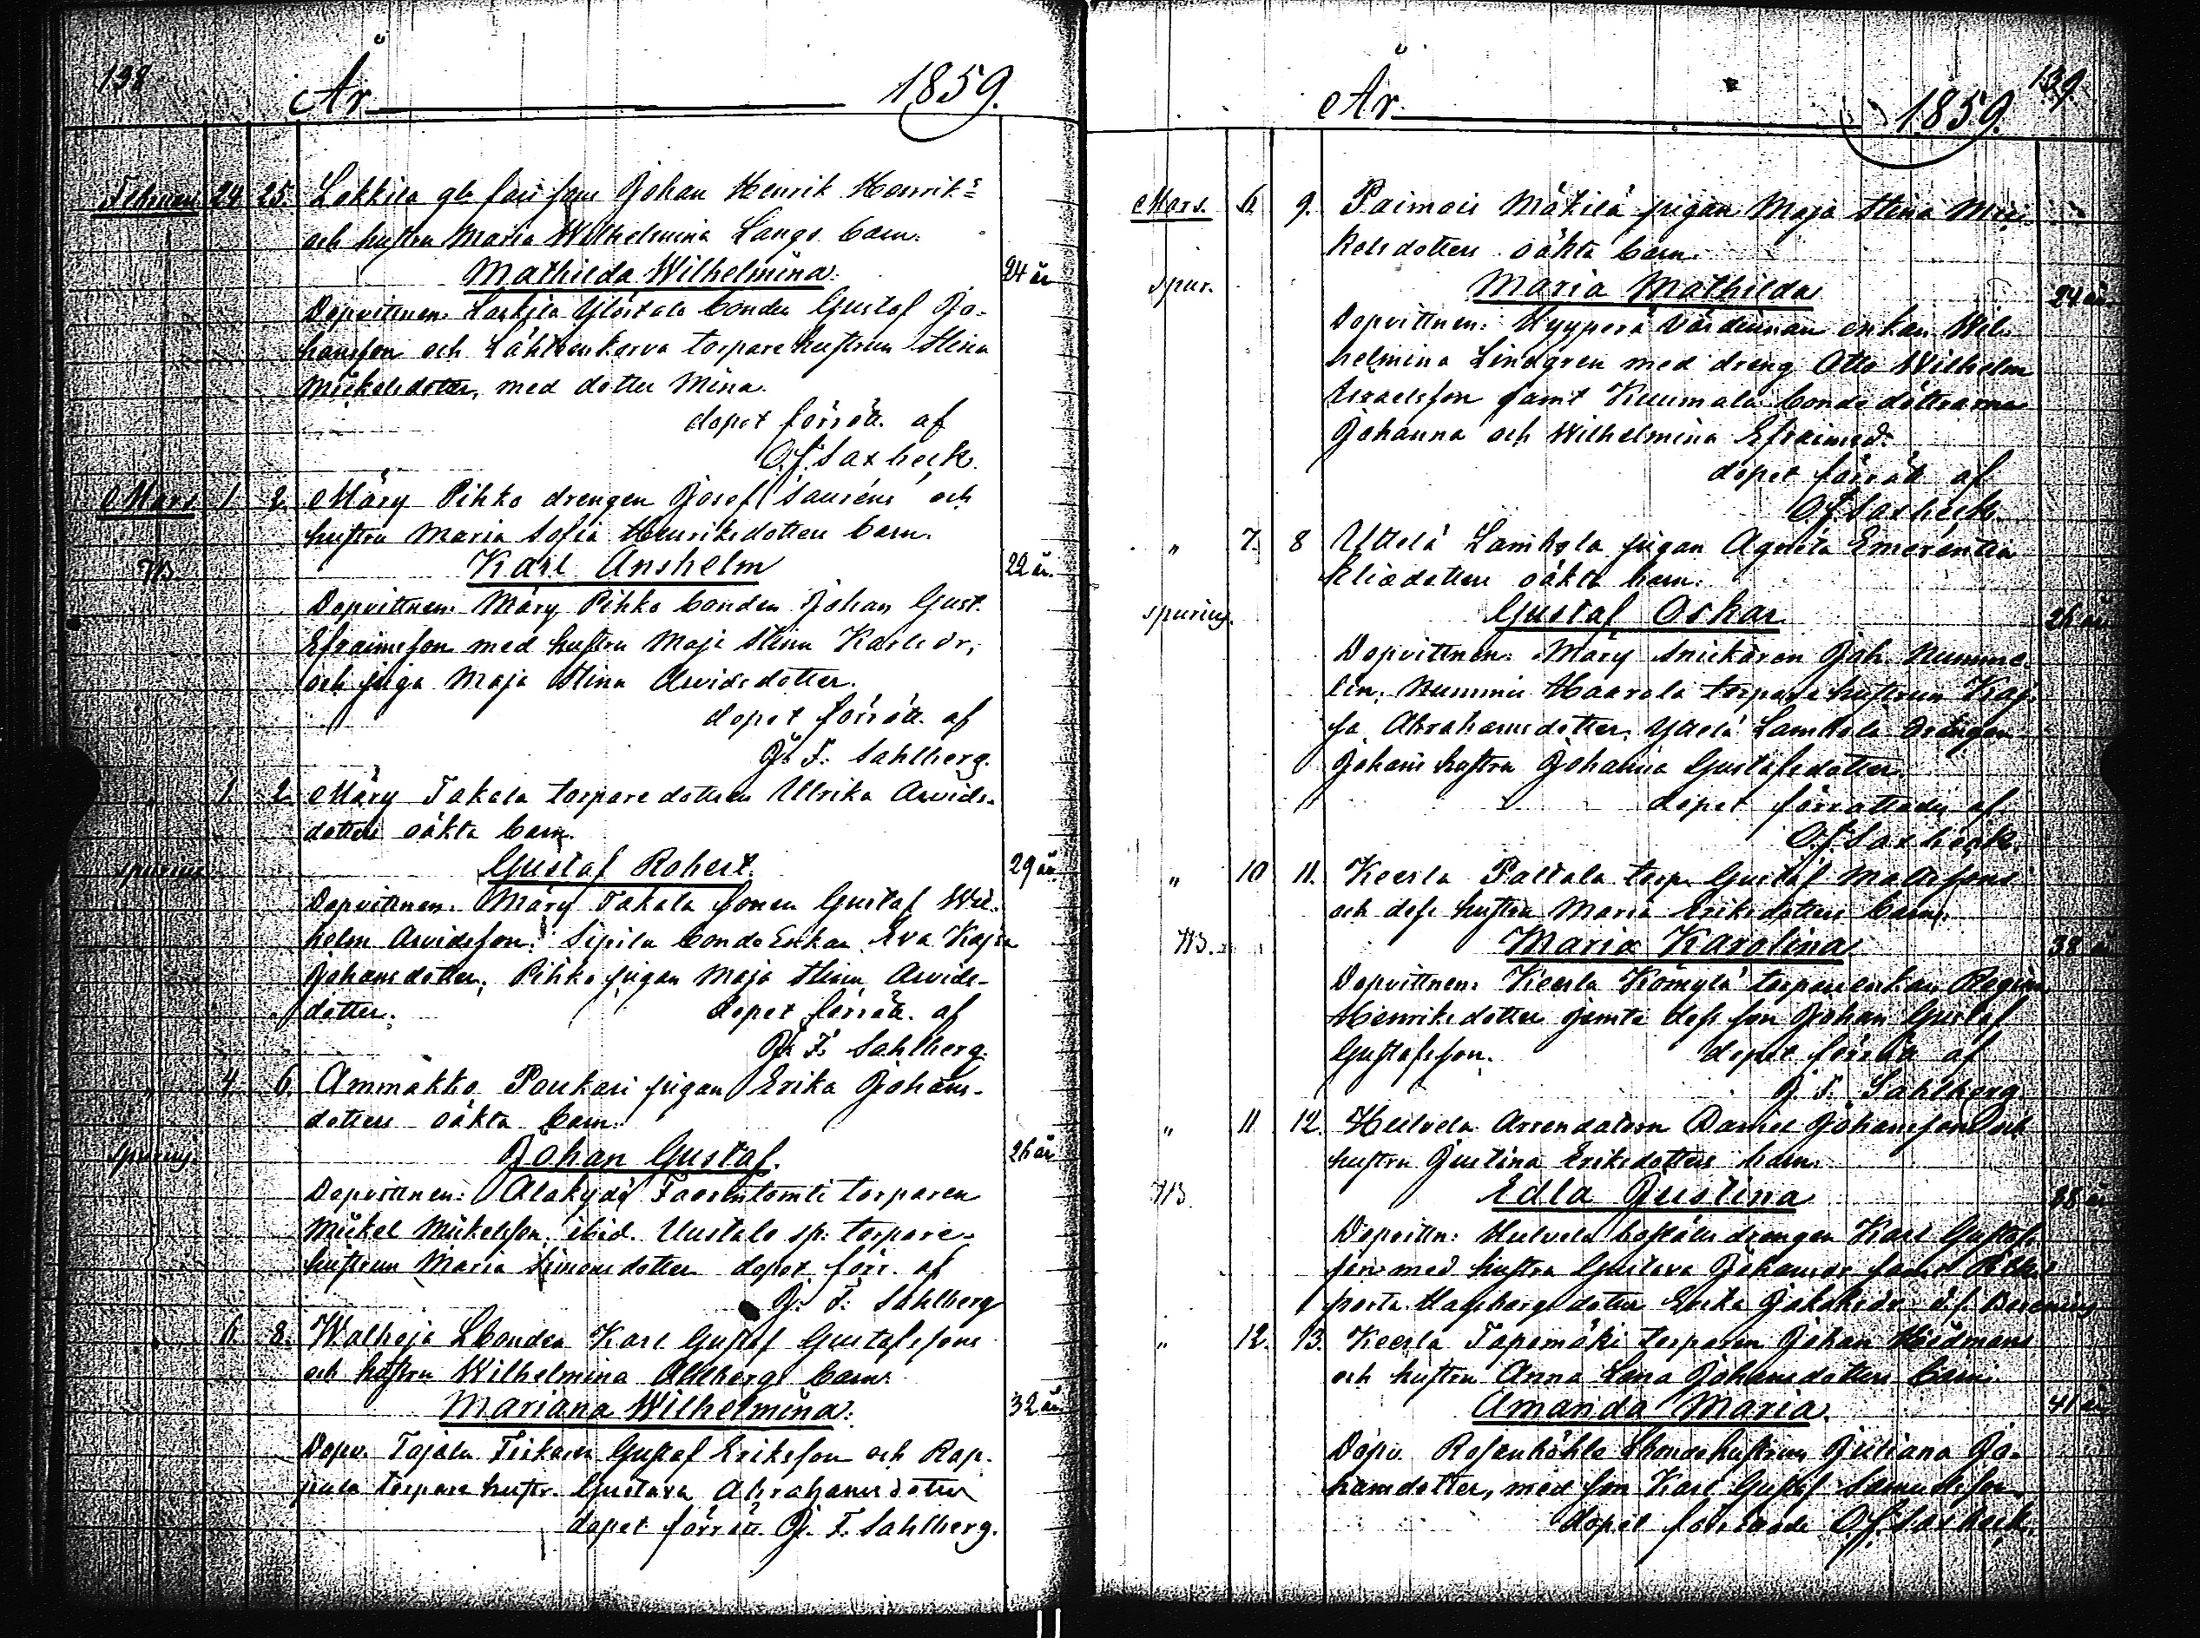 138
År 1859.
Februari 24. 25. Lakkila gb. Johan Henrik Henrik:s
och hustru Maria Wilhelmina Langs barn.
Mathilda Wilhelmina. 24 år
Dopvittnen: Laskila Ylöstalo bonden Gustaf Jo-
hansson och torpare hustrun Stina
Mickelsdotter, med dotter Mina.
dopet förrätt. af
O.f. Saxbeck.
Mars 1. 2. Märy Pihko drengen Josef Sauréns och
hustru Maria Sofia Henriksdotters barn.
Karl Anshelm 22 år.
Dopvittnen: Märy Pihko bonden Johan Gust.
Efraimsson med hustru Maja Stina Karlsdr,
och piga Maja Stina Arvidsdotter.
dopet förrätt. af
J. F. Sahlberg.
" 1. 2. Märy Takala torparedottren Ullrika Arvids-
dotters oäkta barn.
spurius Gustaf Robert. 29 år
Dopvittnen: Märy Takala sonen Gustaf Wil-
helm Arvidsson; Sipila bonde Enkan Eva Kajsa
Johansdotter; Pihko pigan Maja Stina Arvids-
dotter. dopet förrätt. af
J. F. Sahlberg.
" 4. 6. Ammakko Poukari pigan Erika Johans-
dotters oäkta barn.
spurius Johan Gustaf. 26 år
Dopvittnen: Alakydö torparen
Mickel Mickelsson, ibid. Uustalo sp: torpare-
hustrun Maria Simonsdotter dopet förr. af
J. F. Sahlberg
" 6. 8. Walheja Lbonden Karl Gustaf Gustafssons
och hustru Wilhelmina Ahlbergs barn.
Mariana Wilhelmina. 32 år
Dopv. Tajala Gustaf Eriksson och Rap-
pula torpare hustr. Gustava Abrahamsdotter
dopet förrätt. J. F. Sahlberg.
139
År 1859.
Mars. 6. 9. Paimais Mäkilä pigan Maja Stina Mic-
kelsdotters oäkta barn.
spur. Maria Mathilda 24 år
Dopvittnen: Kyyperä Värdinnan enkan Wil-
helmina Lindgren med dreng Otto Wilhelm
Israelsson samt Kuumala bondedöttrarna
Johanna och Wilhelmina Efraimsd:
dopet förrätt af
O.f. Saxbeck.
" 7. 8 Yttelä Lamhola pigan Agneta Emerentia
Eliædotters oäkta barn.
spurius. Gustaf Oskar. 26 år
Dopvittnen: Märy Snickaren Joh. Numme-
lin, Nummis Haarala torparehustrun Kaj-
sa Abrahamsdotter, Yttelä Lamhola Drängen
Johans hustru Johanna Gustafsdotter.
dopet förrättades af
O.f. Saxbeck.
" 10 11. Keerla Paltala torp. Gustaf Mattssons
och dess hustru Maria Eriksdotters barn.
Maria Karolina. 38 år
Dopvittnen: Keerla Kömylä torpareenkan Regina
Henriksdotter jemte dess son Johan Gustaf
Gustafsson. dopet förrätt af
J. F. Sahlberg
" 11 12. Hulvela Arrendatorn Daniel Johansson och
hustru Justina Eriksdotters barn.
Edla Justina 38 år
Dopvittn: Hulvela boställsdrengen Karl Gustafs-
son med hustru Gustava Johansdr samt
Hagsbergs dotter Erika Jakobsdr.
" 12. 13. Keerla Tapomäki torparen Johan Widmans
och hustru Anna Lena Johansdotters barn.
Amanda Maria. 41 år
Dopv. Rosenköhla Lbondehustrun Juliana Jo-
hansdotter, med son Karl Gustaf Samuelsson.
dopet förrättade O.f. Saxbeck.